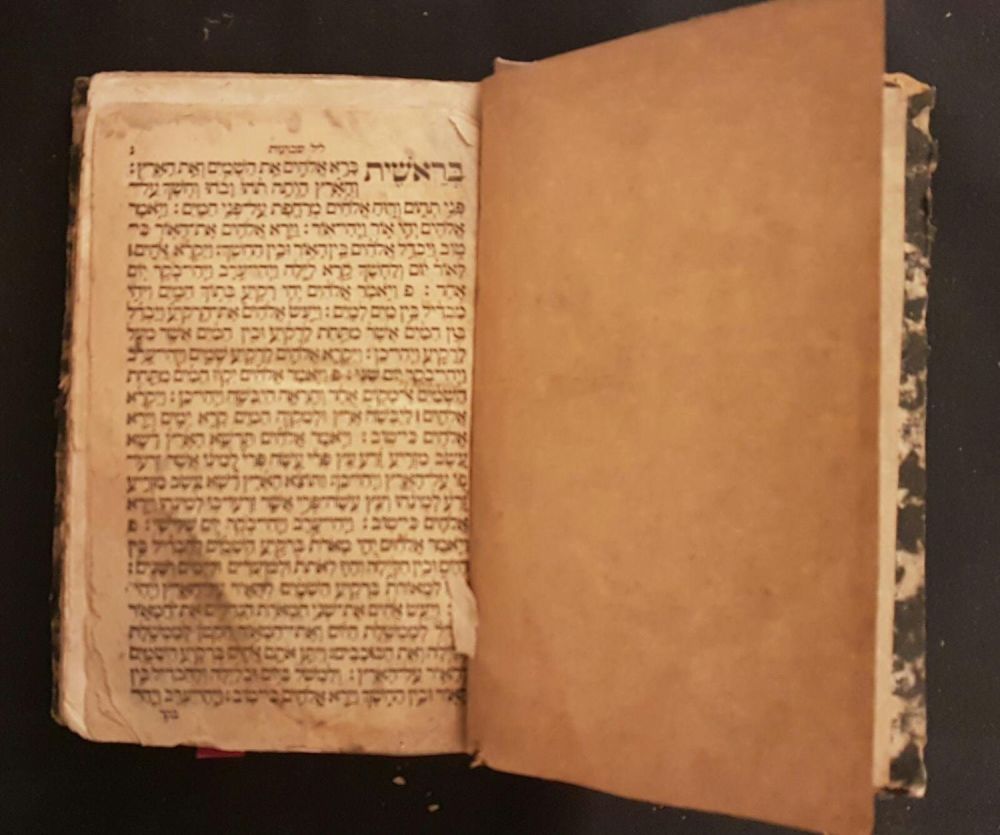 ליל שבועות ג
בְּרֵאשִׁית בָּרָא אֱלֹהִים אֵת הַשָּׁמַיִם וְאֵת הָאָרֶץ׃
וְהָאָרֶץ הָיְתָה תֹהוּ וָבֹהוּ וְחֹשֶׁךְ עַל־
פְּנֵי תְהוֹם וְרוּחַ אֱלֹהִים מְרַחֶפֶת עַל־פְּנֵי הַמָּיִם׃ וַיֹּאמֶר
אֱלֹהִים יְהִי אוֹר וַיְהִי־אוֹר׃ וַיַּרְא אֱלֹהִים אֶת־הָאוֹר כִּי־
טוֹב וַיַּבְדֵּל אֱלֹהִים בֵּין הָאוֹר וּבֵין הַחֹשֶׁךְ׃ וַיִּקְרָא אֱלֹהִים׀
לָאוֹר יוֹם וְלַחֹשֶׁךְ קָרָא לָיְלָה וַיְהִי־עֶרֶב וַיְהִי־בֹקֶר יוֹם
אֶחָד׃ פ וַיֹּאמֶר אֱלֹהִים יְהִי רָקִיעַ בְּתוֹךְ הַמָּיִם וִיהִי
מַבְדִּיל בֵּין מַיִם לָמָיִם׃ וַיַּעַשׂ אֱלֹהִים אֶת־הָרָקִיעַ וַיַּבְדֵּל
בֵּין הַמַּיִם אֲשֶׁר מִתַּחַת לָרָקִיעַ וּבֵין הַמַּיִם אֲשֶׁר מֵעַל
לָרָקִיעַ וַיְהִי־כֵן׃ וַיִּקְרָא אֱלֹהִים לָרָקִיעַ שָׁמָיִם וַיְהִי־עֶרֶב
וַיְהִי־בֹקֶר יוֹם שֵׁנִי׃ פ וַיֹּאמֶר אֱלֹהִים יִקָּווּ הַמַּיִם מִתַּחַת
הַשָּׁמַיִם אֶל־מָקוֹם אֶחָד וְתֵרָאֶה הַיַּבָּשָׁה וַיְהִי־כֵן׃ וַיִּקְרָא
אֱלֹהִים׀ לַיַּבָּשָׁה אֶרֶץ וּלְמִקְוֵה הַמַּיִם קָרָא יַמִּים וַיַּרְא
אֱלֹהִים כִּי־טוֹב׃ וַיֹּאמֶר אֱלֹהִים תַּדְשֵׁא הָאָרֶץ דֶּשֶׁא
עֵשֶׂב מַזְרִיעַ זֶרַע עֵץ פְּרִי עֹשֶׂה פְּרִי לְמִינוֹ אֲשֶׁר זַרְעוֹ־
בוֹ עַל־הָאָרֶץ וַיְהִי־כֵן׃ וַתּוֹצֵא הָאָרֶץ דֶּשֶׁא עֵשֶׂב מַזְרִיעַ
זֶרַע לְמִינֵהוּ וְעֵץ עֹשֶׂה־פְּרִי אֲשֶׁר זַרְעוֹ־בוֹ לְמִינֵהוּ וַיַּרְא
אֱלֹהִים כִּי־טוֹב׃ וַיְהִי־עֶרֶב וַיְהִי־בֹקֶר יוֹם שְׁלִישִׁי׃ פ
וַיֹּאמֶר אֱלֹהִים יְהִי מְאֹרֹת בִּרְקִיעַ הַשָּׁמַיִם לְהַבְדִּיל בֵּין
הַיּוֹם וּבֵין הַלָּיְלָה וְהָיוּ לְאֹתֹת וּלְמוֹעֲדִים וּלְיָמִים וְשָׁנִים׃
לִמְאוֹרֹת בִּרְקִיעַ הַשָּׁמַיִם לְהָאִיר עַל־הָאָרֶץ וַיְהִי־
וַיַּעַשׂ אֱלֹהִים אֶת־שְׁנֵי הַמְּאֹרֹת הַגְּדֹלִים אֶת־הַמָּאוֹר
לְמֶמְשֶׁלֶת הַיּוֹם וְאֶת־הַמָּאוֹר הַקָּטֹן לְמֶמְשֶׁלֶת
הַלַּיְלָה וְאֵת הַכּוֹכָבִים׃ וַיִּתֵּן אֹתָם אֱלֹהִים בִּרְקִיעַ הַשָּׁמָיִם
לְהָאִיר עַל־הָאָרֶץ׃ וְלִמְשֹׁל בַּיּוֹם וּבַלַּיְלָה וּלְהַבְדִּיל בֵּין
הָאוֹר וּבֵין הַחֹשֶׁךְ וַיַּרְא אֱלֹהִים כִּי־טוֹב׃ וַיְהִי־עֶרֶב וַיְהִי־